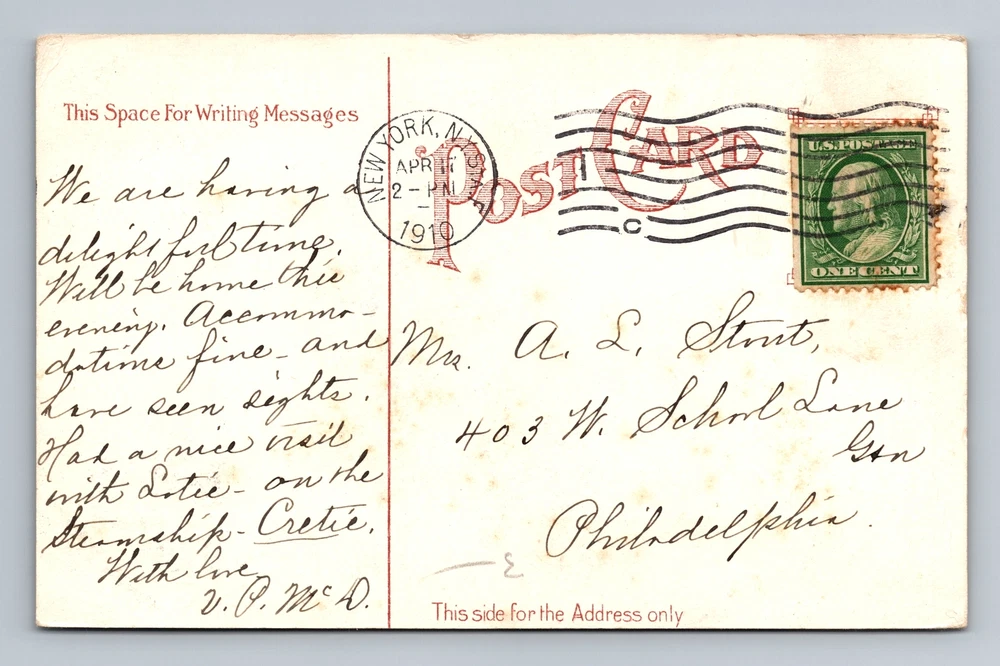 This Space For Writing Messages
We are having a
delightful time.
Will be home this
evening. Accommo-
dations fine - and
have seen sights.
Had a nice visit
with Lotie - on the
Steamship - Cretic.
With love
V. P. McD.
NEW YORK, N.Y.
APR 11
2 - PM
1910
POST CARD
C
U.S. POSTAGE
ONE CENT
Mrs. A. L. Stout,
403 W. School Lane
Gtn
Philadelphia.
This side for the Address only